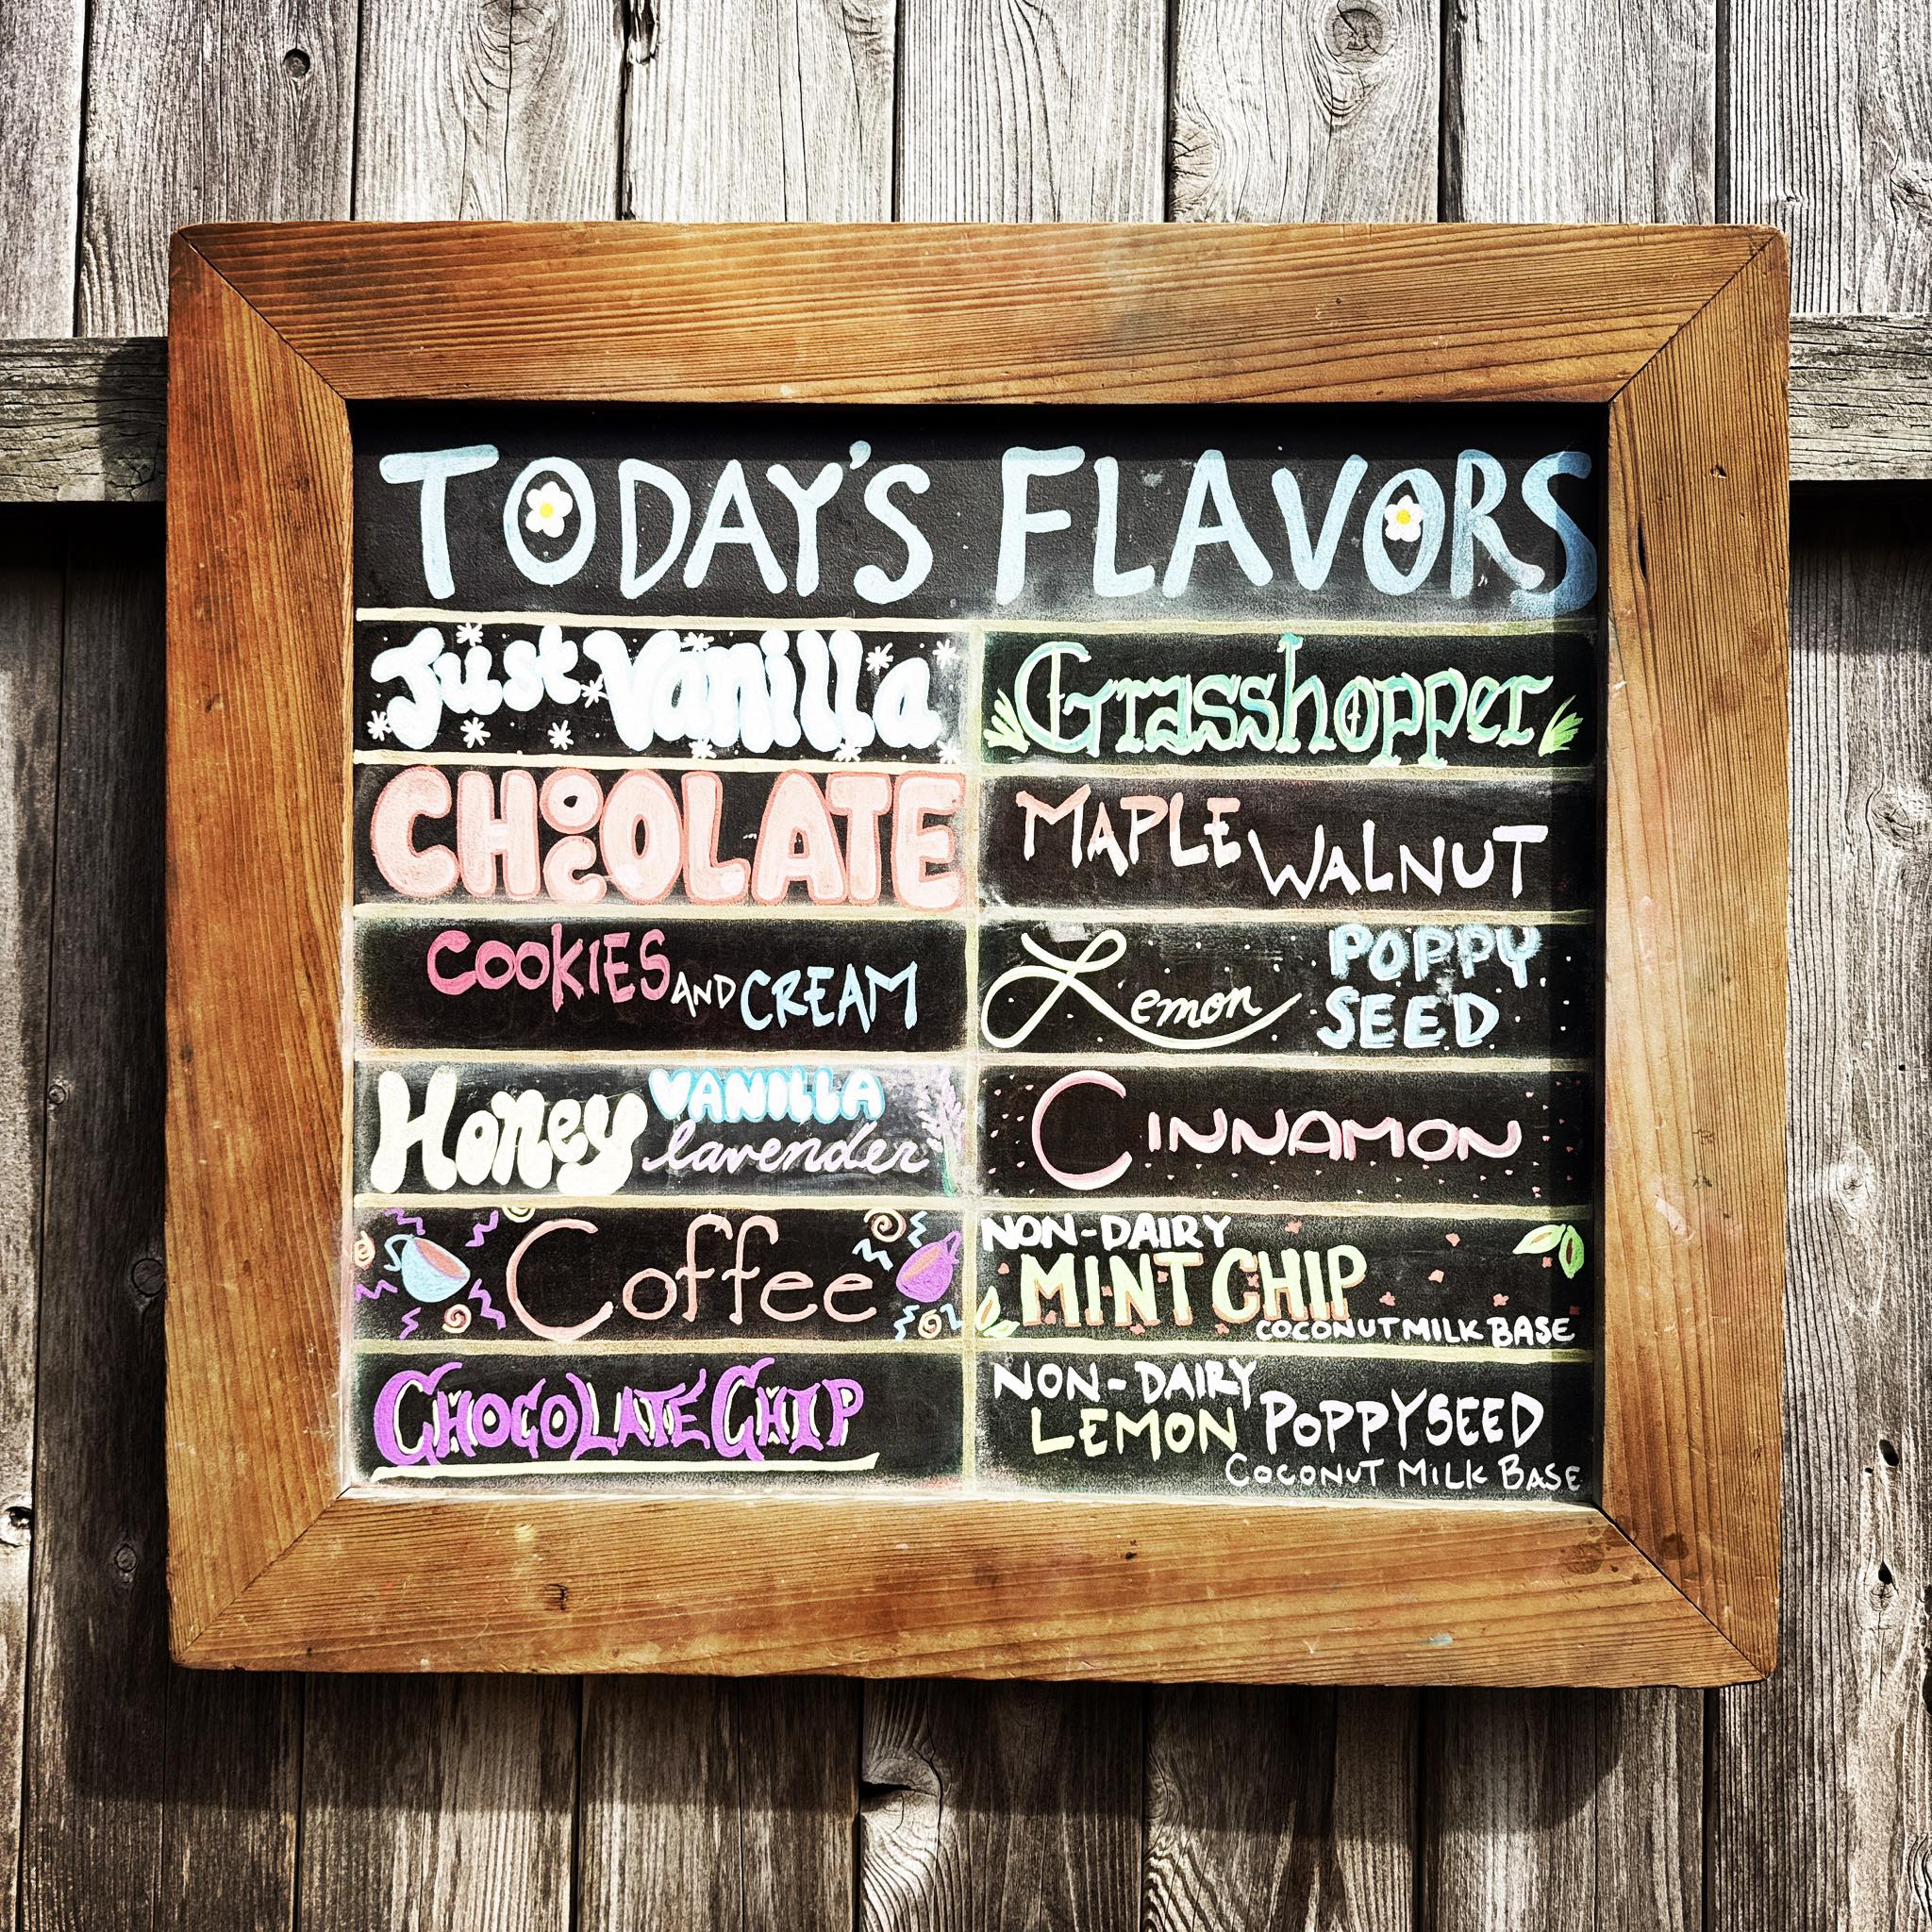 TODAY'S FLAVORS
Just Vanilla
CHOCOLATE
COOKIES AND CREAM
Honey VANILLA
lavender
Coffee
CHOCOLATE CHIP
Grasshopper
MAPLE WALNUT
Lemon POPPY
SEED
CINNAMON
NON-DAIRY
MINT CHIP
COCONUT MILK BASE
NON-DAIRY
LEMON POPPYSEED
COCONUT MILK BASE